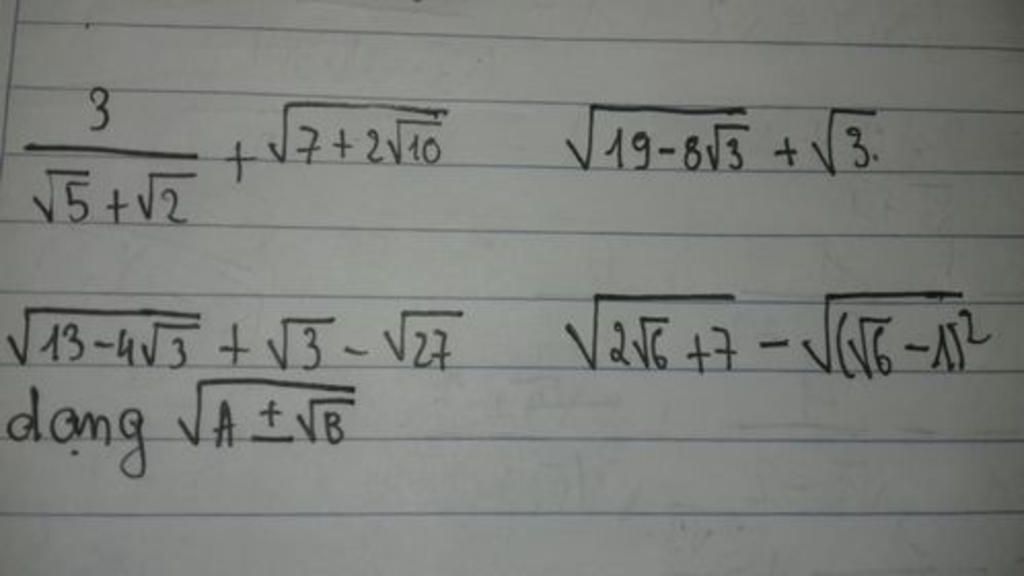 3/(√5 + √2) + √(7 + 2√10)    √(19 - 8√3) + √3.
√(13 - 4√3) + √3 - √27    √(2√6 + 7) - √((√6 - 1)²)
dạng √(A ± √B)